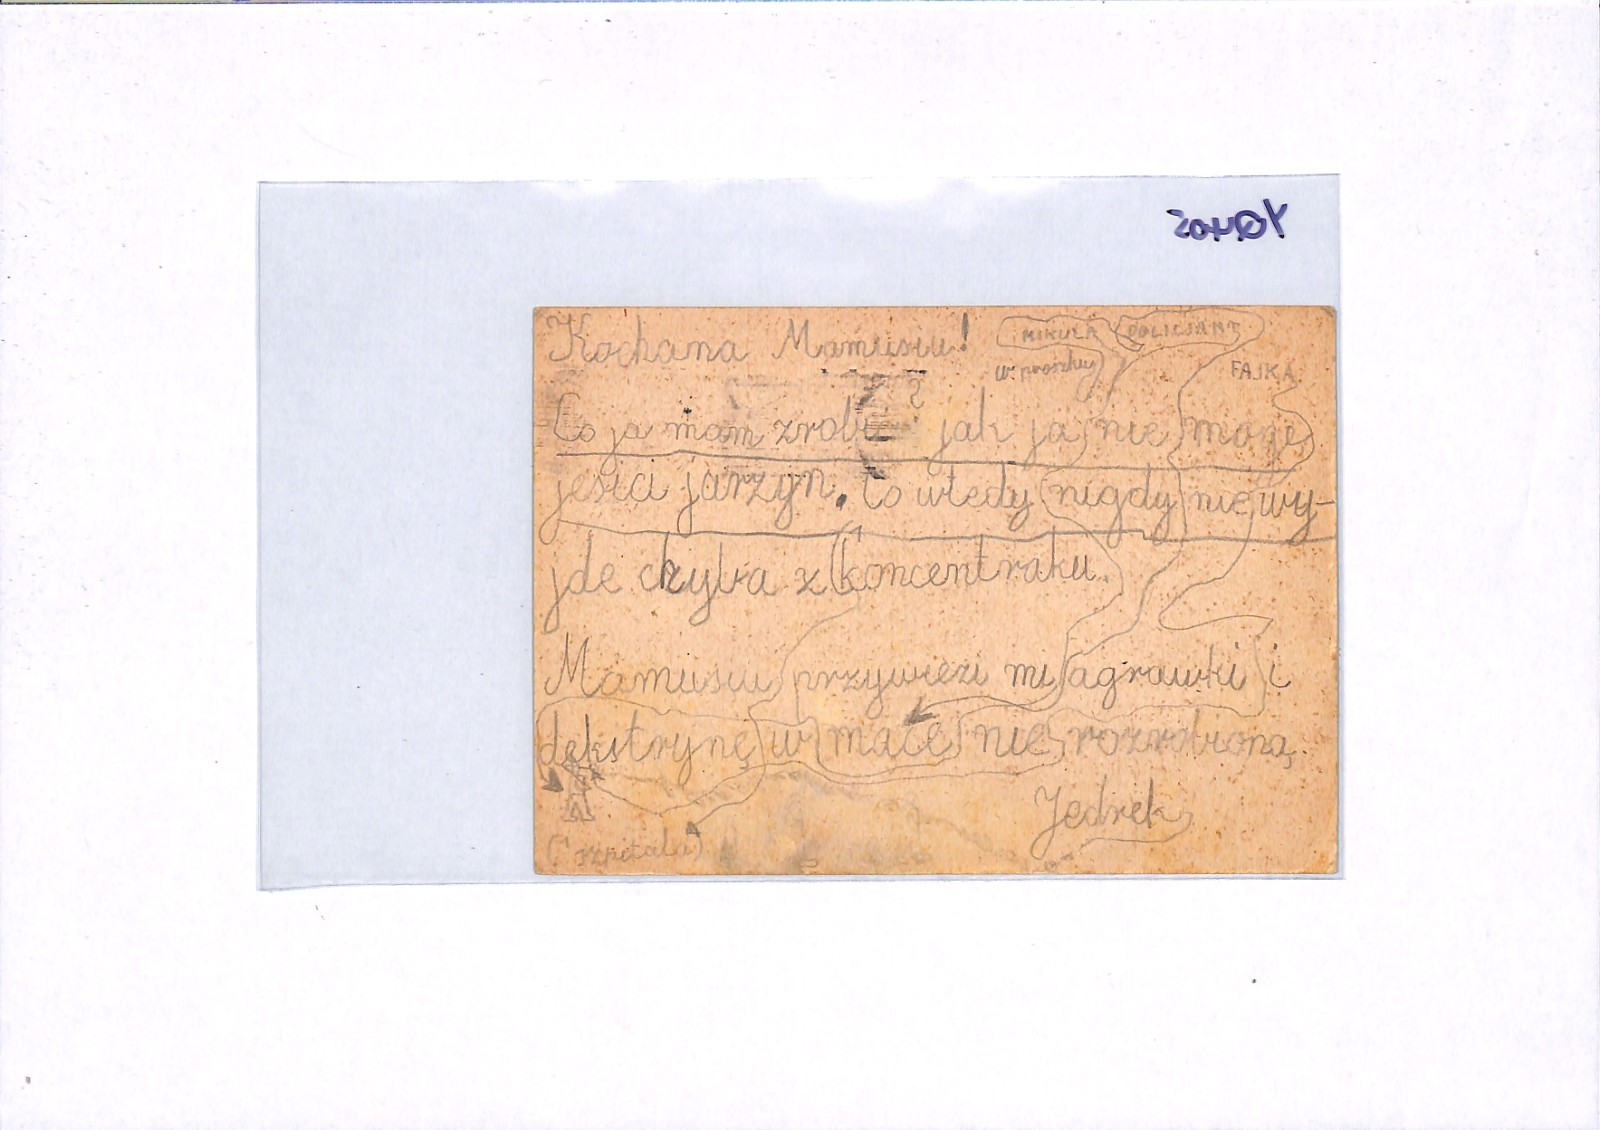 Kochana Mamusiu!
MIKUŁA POLICJANT
w proszku
FAJKA
Co ja mam zrobić? jak ja nie mogę
jeści jarzyn. to wtedy nigdy nie wy-
jdę chyba z koncentraku.
Mamusiu przywieź mi agrawki i
dekstrynę w mace nie rozrobioną.
Jędrek
(szpitala)